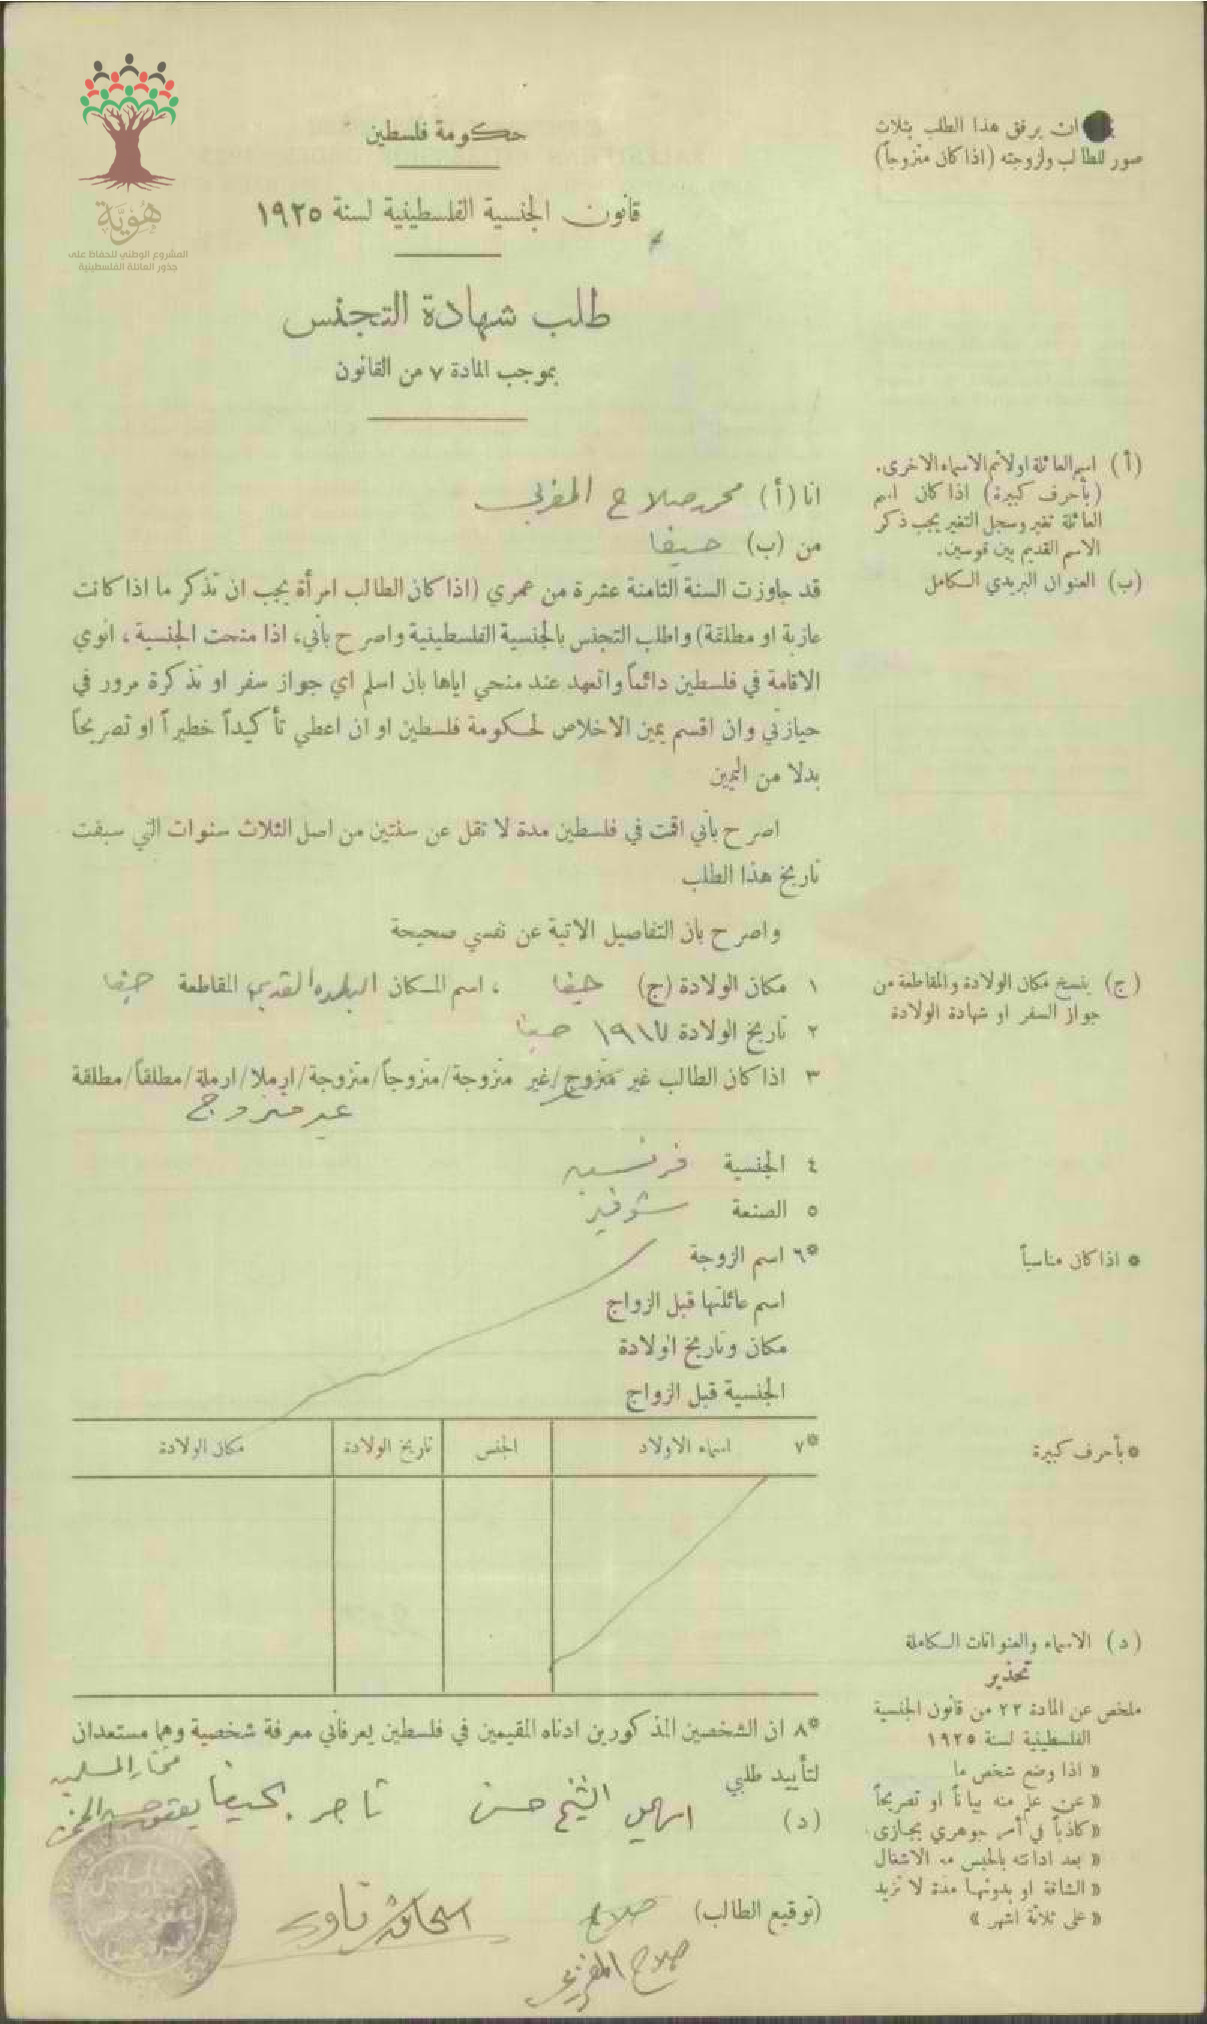 هُويَّة
المشروع الوطني للحفاظ على
جذور العائلة الفلسطينية
ان يرفق هذا الطلب بثلاث
صور للطالب ولزوجته (اذا كان متزوجاً)
حكومة فلسطين
قانون الجنسية الفلسطينية لسنة ١٩٢٥
طلب شهادة التجنس
بموجب المادة ٧ من القانون
(أ) اسم العائلة اولا ثم الاسماء الاخرى.
(بأحرف كبيرة) اذا كان اسم
العائلة تغير وسجل التغير يجب ذكر
الاسم القديم بين قوسين.
(ب) العنوان البريدي الكامل
انا (أ) محمد صلاح المغربي
من (ب) حيفا
قد جاوزت السنة الثامنة عشرة من عمري (اذا كان الطالب امرأة يجب ان تذكر ما اذا كانت
عازبة او مطلقة) واطلب التجنس بالجنسية الفلسطينية واصرح بأني، اذا منحت الجنسية، انوي
الاقامة في فلسطين دائماً واتعهد عند منحي اياها بان اسلم اي جواز سفر او تذكرة مرور في
حيازتي وان اقسم يمين الاخلاص لحكومة فلسطين او ان اعطي تأكيداً خطيراً او تصريحاً
بدلا من اليمين
اصرح بأني اقمت في فلسطين مدة لا تقل عن سنتين من اصل الثلاث سنوات التي سبقت
تاريخ هذا الطلب
واصرح بان التفاصيل الاتية عن نفسي صحيحة
(ج) ينسخ مكان الولادة والمقاطعة من
جواز السفر او شهادة الولادة
١ مكان الولادة (ج) حيفا ، اسم المكان البلده القديمه المقاطعة حيفا
٢ تاريخ الولادة ١٩١٧ حيفا
٣ اذا كان الطالب غير متزوج/غير متزوجة/متزوجاً/متزوجة/ارملا/ارملة/مطلقاً/مطلقة
غير متزوج
٤ الجنسية فرنسيه
٥ الصنعة شوفير
* اذا كان مناسباً
*٦ اسم الزوجة
اسم عائلتها قبل الزواج
مكان وتاريخ الولادة
الجنسية قبل الزواج
* بأحرف كبيرة
*٧ اسماء الاولاد الجنس تاريخ الولادة مكان الولادة
(د) الاسماء والعنوانات الكاملة
تحذير
ملخص عن المادة ٢٣ من قانون الجنسية
الفلسطينية لسنة ١٩٢٥
« اذا وضع شخص ما
« عن علم منه بياناً او تصريحاً
« كاذباً في أمر جوهري يجازى
« بعد ادانته بالحبس مع الاشغال
« الشاقة او بدونها مدة لا تزيد
« على ثلاثة اشهر »
*٨ ان الشخصين المذكورين ادناه المقيمين في فلسطين يعرفاني معرفة شخصية وهما مستعدان
لتأييد طلبي
مختار المسلمين
(د) الشيخ حسن تاجر بحيفا
(توقيع الطالب) صلاح
صلاح المغربي